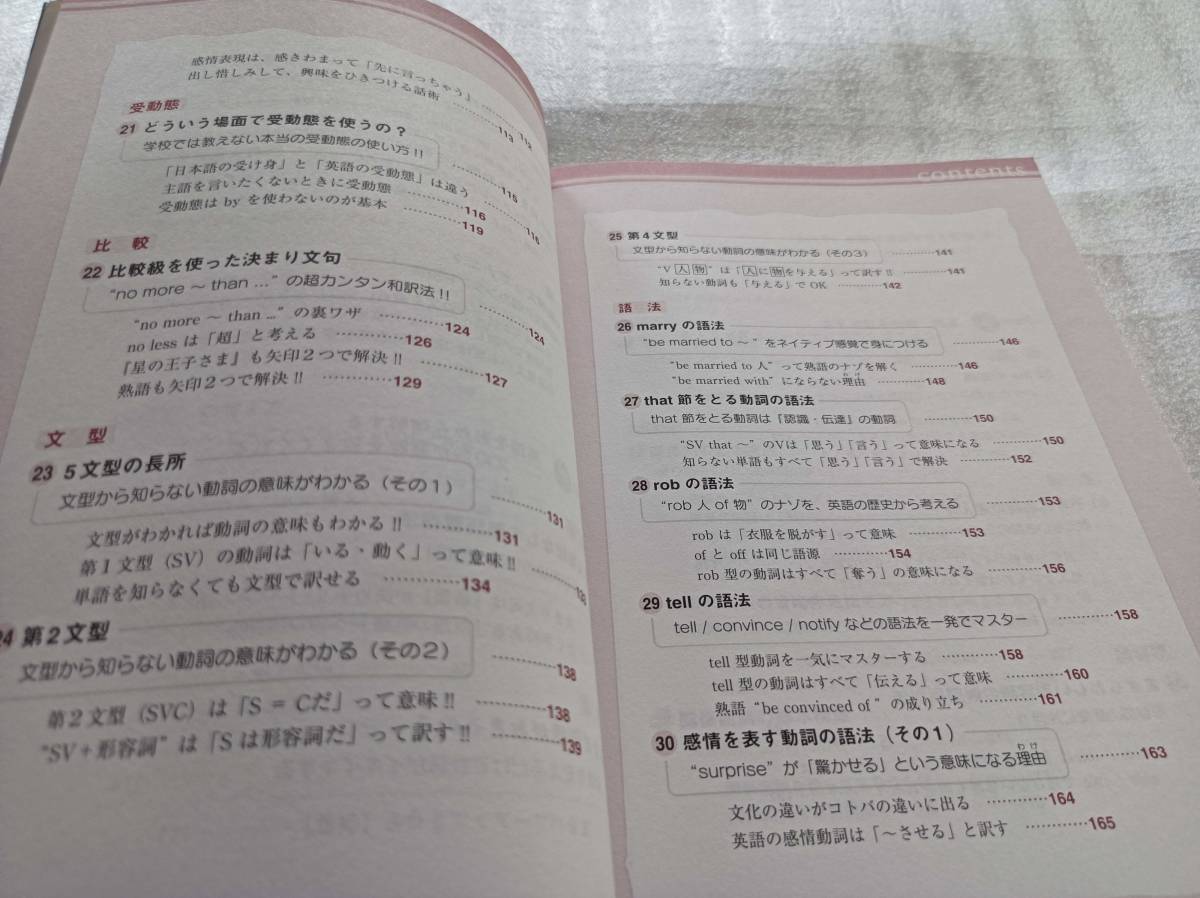 感情表現は、感きわまって「先に言っちゃう」 ……112
出し惜しみして、興味をひきつける話術 ……113
受動態
21 どういう場面で受動態を使うの？
学校では教えない本当の受動態の使い方!! ……115
「日本語の受け身」と「英語の受動態」は違う ……116
主語を言いたくないときに受動態 ……116
受動態は by を使わないのが基本 ……119
比 較
22 比較級を使った決まり文句
"no more ～ than …" の超カンタン和訳法!! ……124
"no more ～ than …" の裏ワザ ……124
no less は「超」と考える ……126
『星の王子さま』も矢印２つで解決!! ……127
熟語も矢印２つで解決!! ……129
文 型
23 ５文型の長所
文型から知らない動詞の意味がわかる（その１） ……131
文型がわかれば動詞の意味もわかる!! ……131
第１文型（SV）の動詞は「いる・動く」って意味!! ……
単語を知らなくても文型で訳せる ……134
24 第２文型
文型から知らない動詞の意味がわかる（その２） ……138
第２文型（SVC）は「S = Cだ」って意味!! ……138
"SV＋形容詞" は「Sは形容詞だ」って訳す!! ……139
contents
25 第４文型
文型から知らない動詞の意味がわかる（その３） ……141
"V 人 物" は「人に物を与える」って訳す!! ……141
知らない動詞も「与える」で OK ……142
語 法
26 marry の語法
"be married to ～" をネイティブ感覚で身につける ……146
"be married to 人" って熟語のナゾを解く ……146
"be married with" にならない理由 わけ ……148
27 that 節をとる動詞の語法
that 節をとる動詞は「認識・伝達」の動詞 ……150
"SV that ～" のVは「思う」「言う」って意味になる ……150
知らない単語もすべて「思う」「言う」で解決 ……152
28 rob の語法
"rob 人 of 物" のナゾを、英語の歴史から考える ……153
rob は「衣服を脱がす」って意味 ……153
of と off は同じ語源 ……154
rob 型の動詞はすべて「奪う」の意味になる ……156
29 tell の語法
tell / convince / notify などの語法を一発でマスター ……158
tell 型動詞を一気にマスターする ……158
tell 型の動詞はすべて「伝える」って意味 ……160
熟語 "be convinced of " の成り立ち ……161
30 感情を表す動詞の語法（その１）
"surprise" が「驚かせる」という意味になる理由 わけ ……163
文化の違いがコトバの違いに出る ……164
英語の感情動詞は「～させる」と訳す ……165